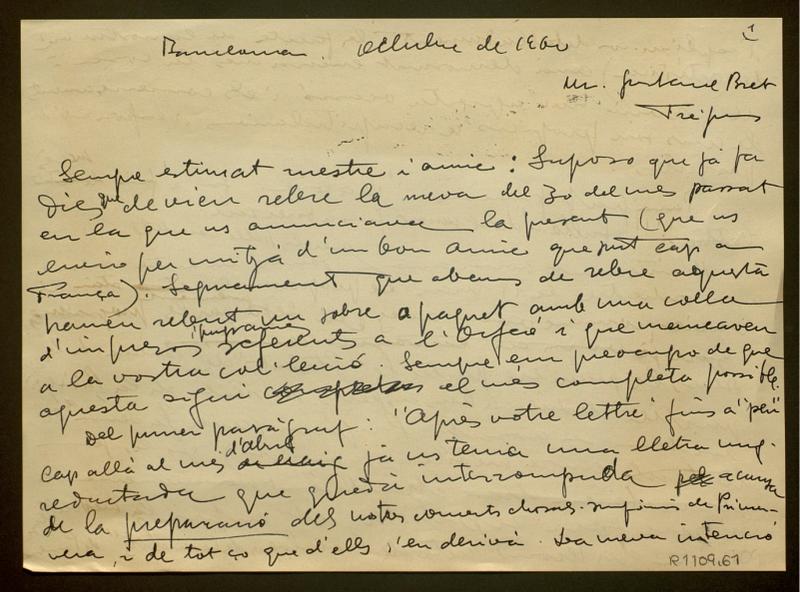 1
Barcelona. Octubre de 1960
Mr. Gustave Bret
Fréjus
Sempre estimat mestre i amic: Suposo que ja fa
dies que devieu rebre la meva del 30 del mes passat
en la que us anunciava la present (que us
envio per mitjà d'un bon amic que surt cap a
França). Segurament que abans de rebre aquesta
haureu rebut un sobre o paquet amb una colla
d'impresos i programes referents a l'Orfeó i que mancaven
a la vostra col·lecció. Sempre em preocupo de que
aquesta sigui el més completa possible.
Del primer paràgraf: "Après votre lettre" fins a "peu"
Cap allà al mes d'abril ja us tenia una lletra mig
redactada que quedà interrompuda a causa
de la preparació dels nostres concerts chorals-simfònics de Prima-
vera, i de tot ço que d'ells s'en derivà. La meva intenció
R1109.61